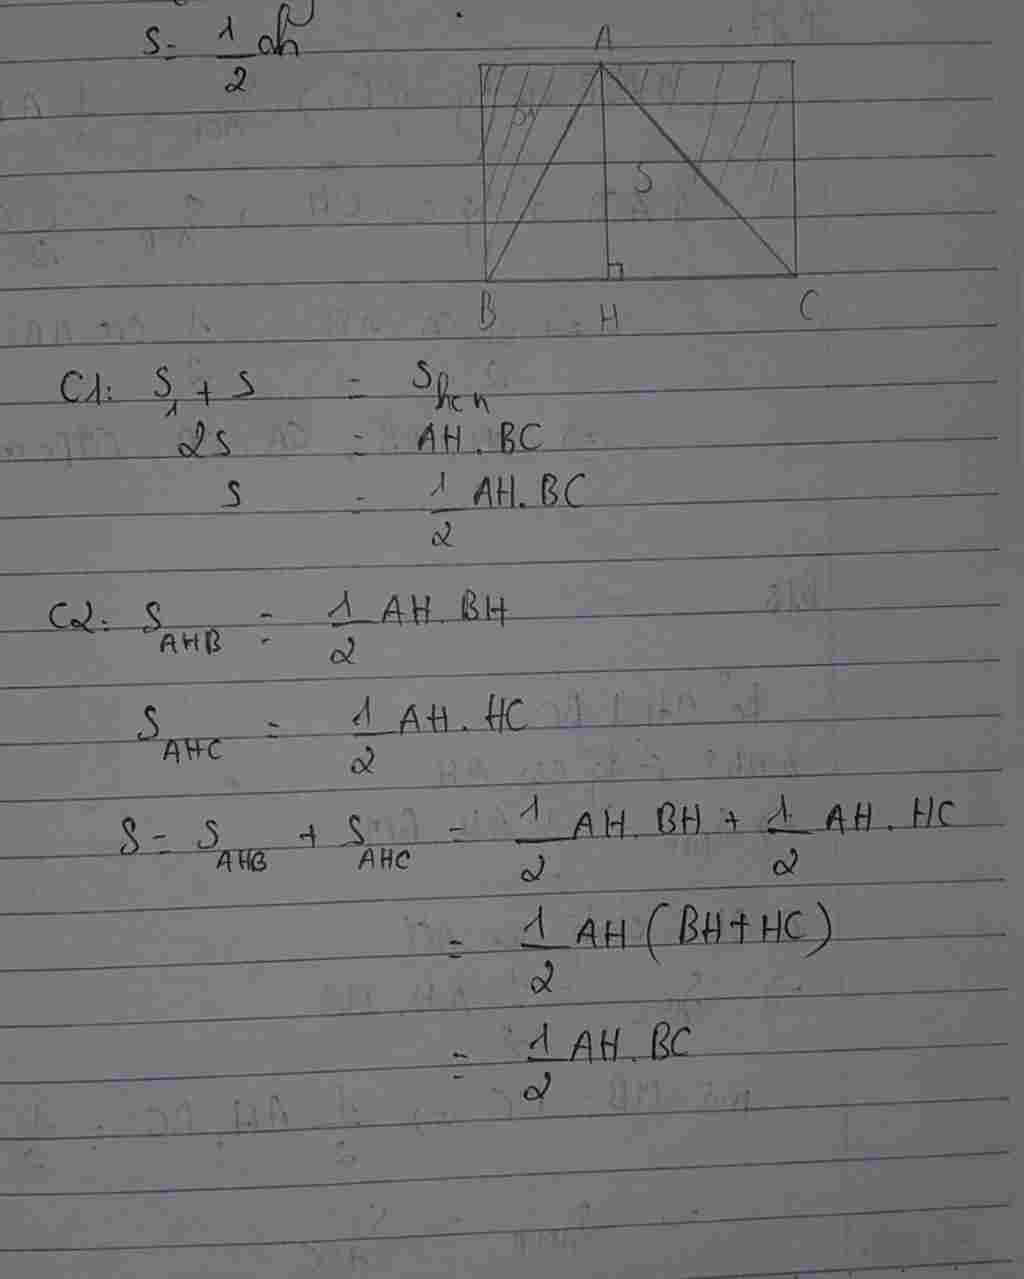 S = 1/2 ah
A
S1
S
B H C
C1: S1 + S = Shcn
2S = AH.BC
S = 1/2 AH.BC
C2: SAHB = 1/2 AH.BH
SAHC = 1/2 AH.HC
S = SAHB + SAHC = 1/2 AH.BH + 1/2 AH.HC
= 1/2 AH(BH+HC)
= 1/2 AH.BC